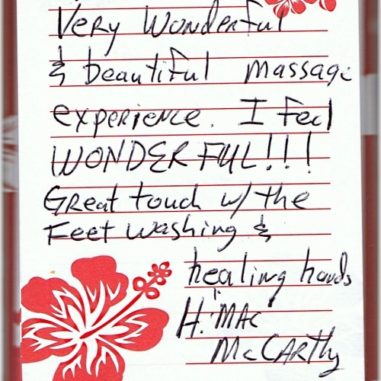 Very Wonderful
& beautiful massage
experience. I feel
WONDERFUL!!!
Great touch w/ the
Feet washing &
healing hands
H. "MAC"
McCARthy